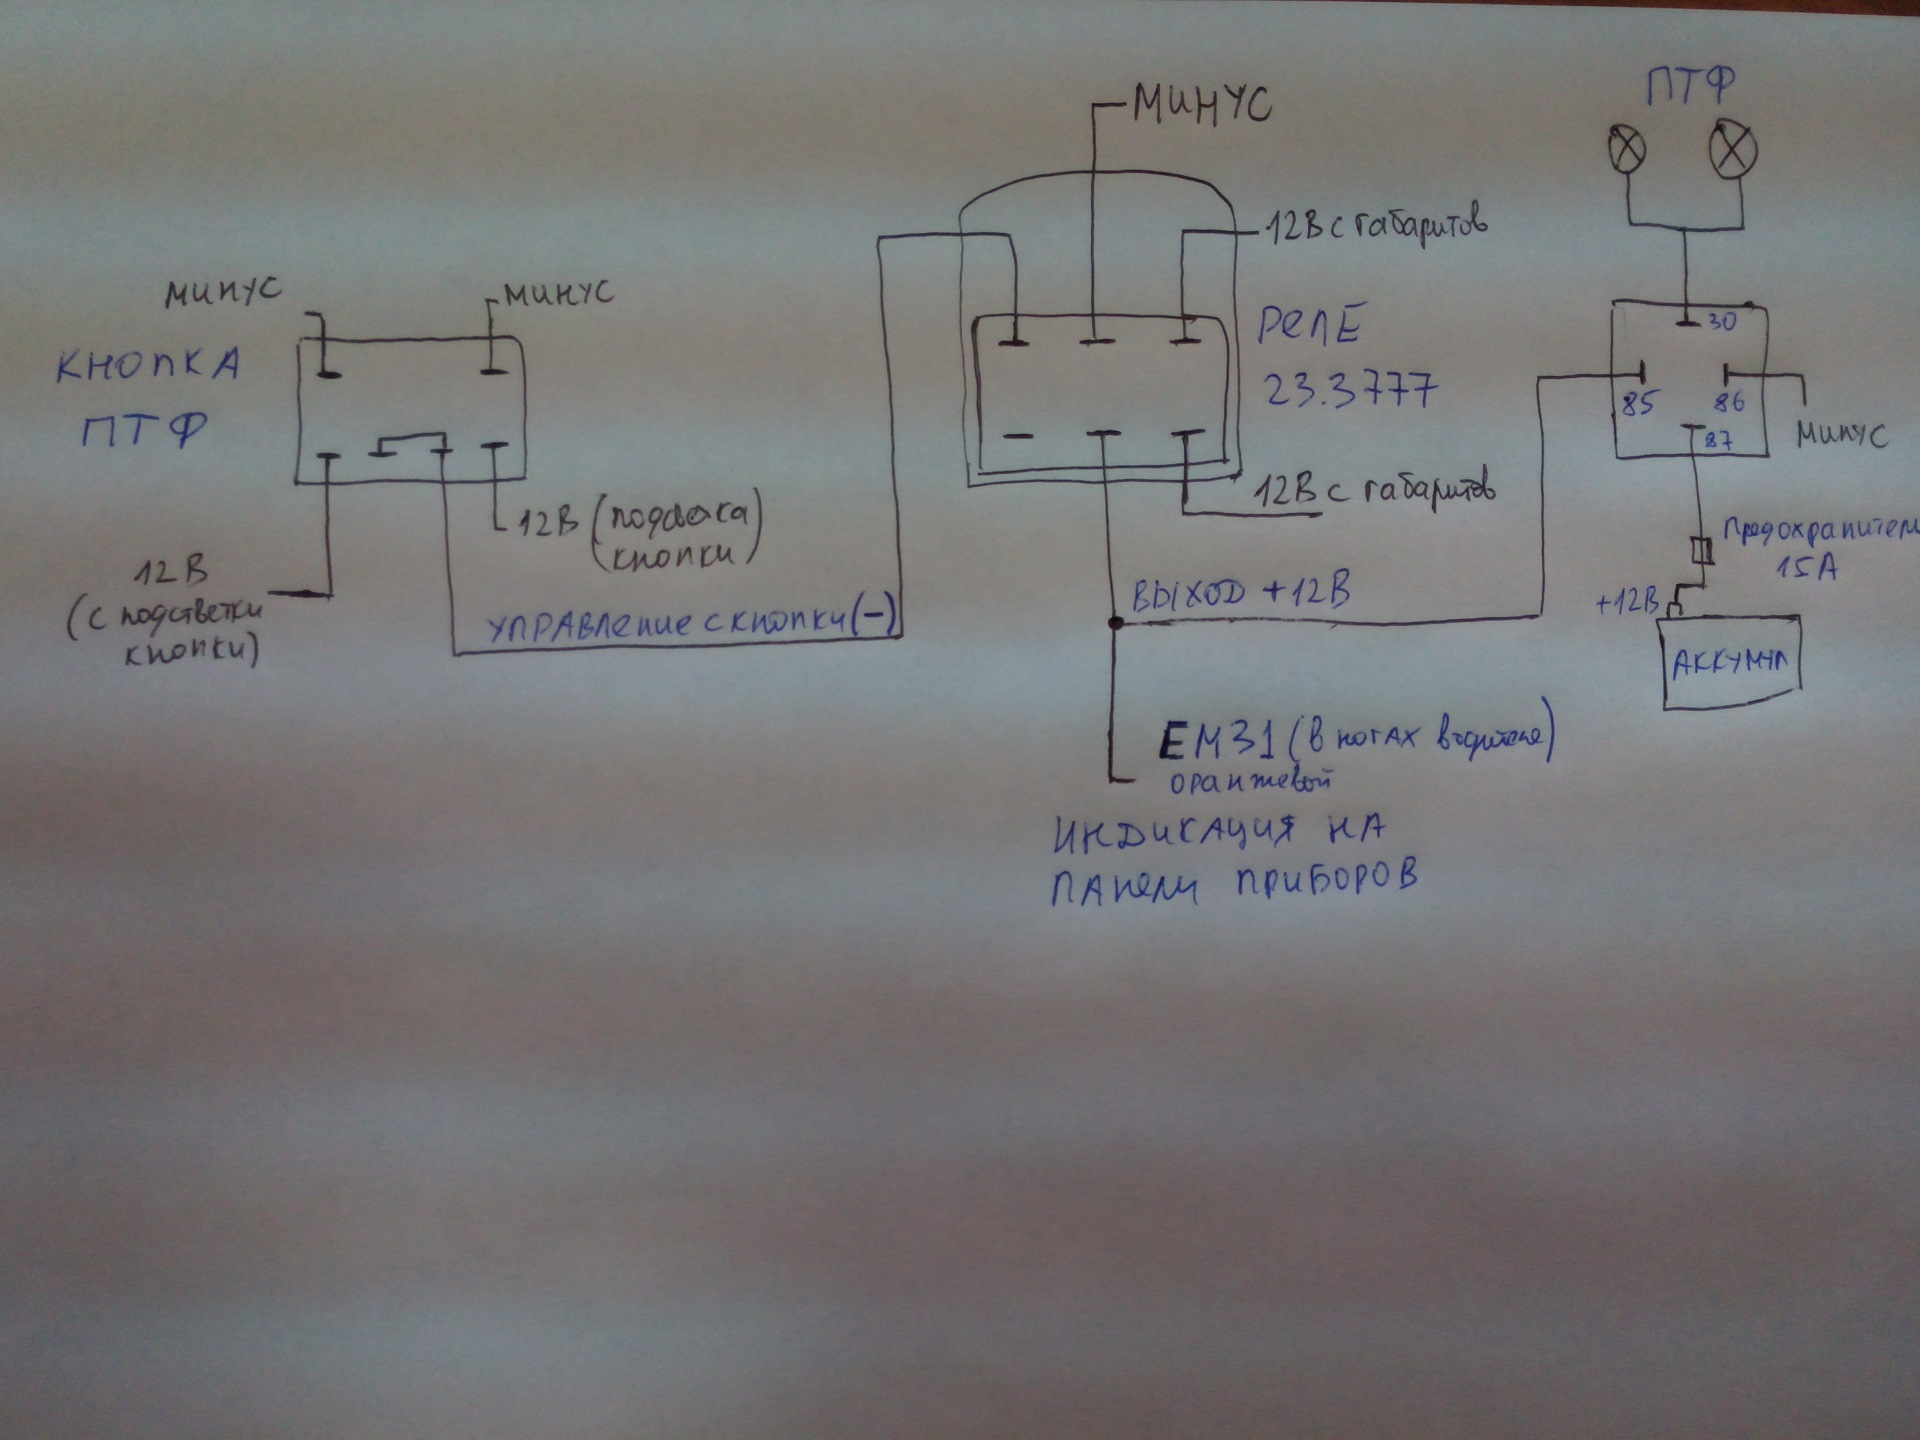 ПТФ
МИНУС
12В с габаритов
МИНУС
МИНУС
КНОПКА
ПТФ
РЕЛЕ
23.3777
30
85
86
87
МИНУС
12В с габаритов
12В (подсветка
кнопки)
12В
(с подстветки
кнопки)
УПРАВление с кнопки (-)
ВЫХОД +12В
Предохранител
15А
+12В
АККУМУЛ
ЕМ31 (в ногах водителя)
оранжевой
ИНДИКАЦИЯ НА
ПАНЕЛИ ПРИБОРОВ